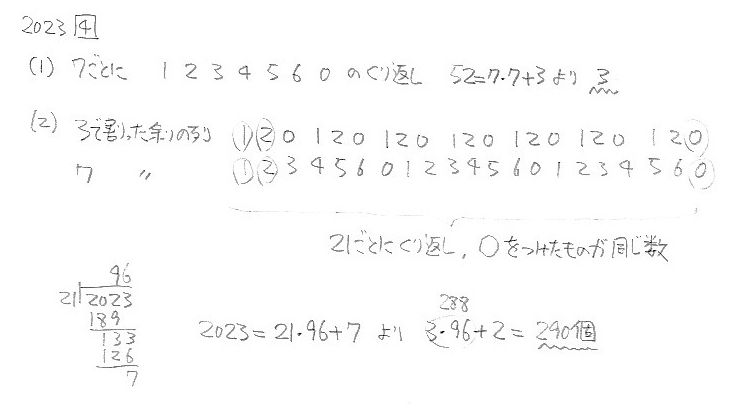 2023 4
(1) 7ごとに 1 2 3 4 5 6 0 のくり返し 52=7・7+3より 3
(2) 3で割った余りの列 1 2 0 1 2 0 1 2 0 1 2 0 1 2 0 1 2 0 1 2 0
7 〃 1 2 3 4 5 6 0 1 2 3 4 5 6 0 1 2 3 4 5 6 0
21ごとにくり返し, ○をつけたものが同じ数
96
21)2023
189
133
126
7
288
2023=21・96+7 より 3・96+2=290個